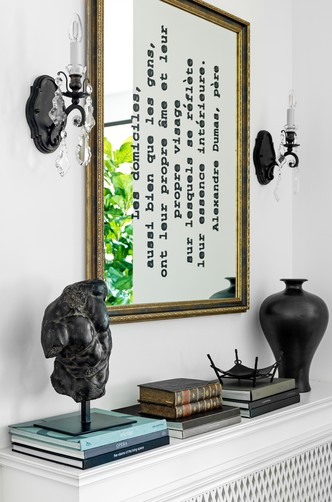 Les domiciles,
aussi bien que les gens,
ont leur propre âme et leur
propre visage
sur lesquels se réflète
leur essence intérieure.
Alexandre Dumas, père